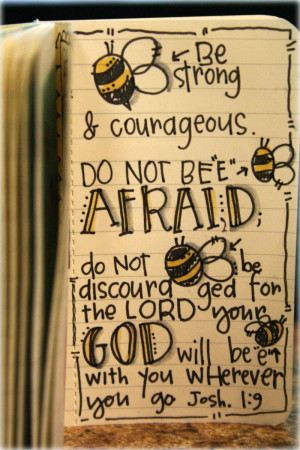 Be
strong
& courageous.
DO NOT BE"E"
AFRAID;
do NOT be
discouraged for
the LORD your
GOD will be"e"
with you wherever
you go Josh. 1:9